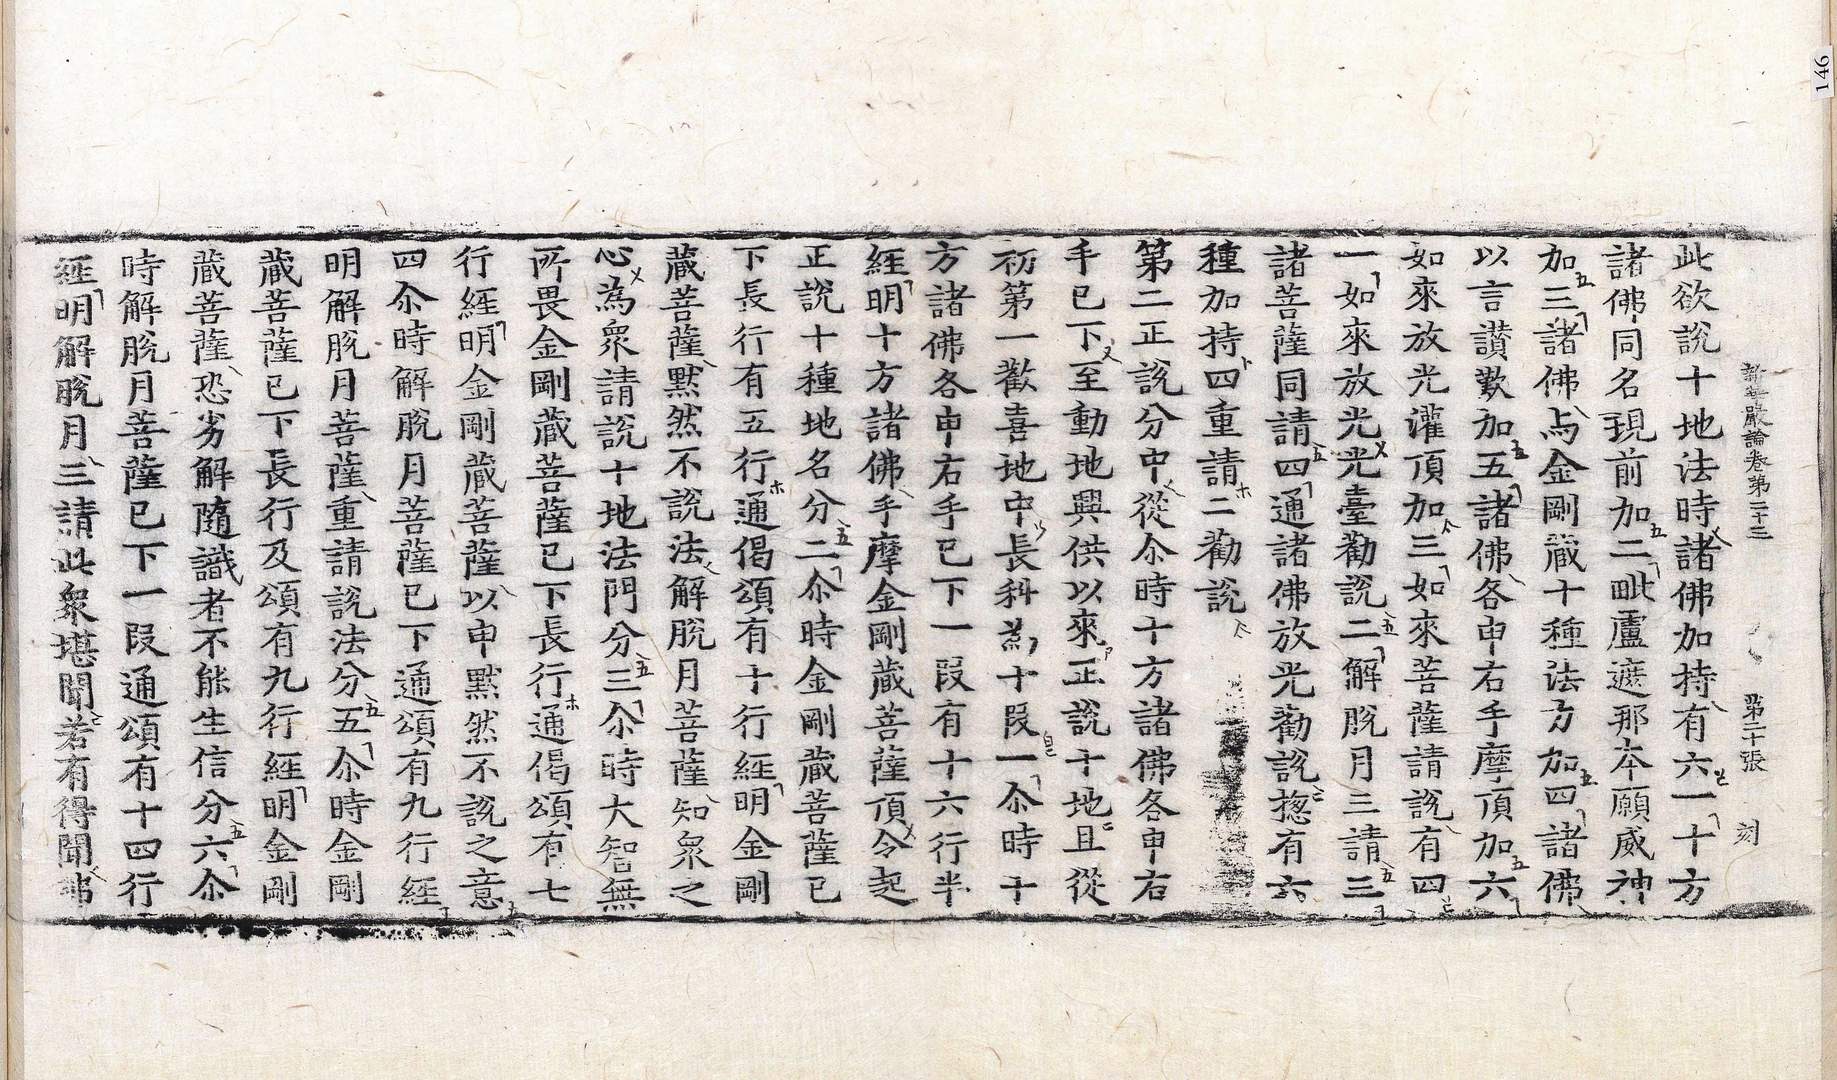 146
新華嚴論卷第二十三 第二十張 刻
此欲說十地法時諸佛加持有六一十方
諸佛同名現前加二毗盧遮那本願威神
加三諸佛与金剛藏十種法方加四諸佛
以言讃歎加五諸佛各申右手摩頂加六
如來放光灌頂加三如來菩薩請說有四
一如來放光光臺勸說二解脫月三請三
諸菩薩同請四通諸佛放光勸說揔有六
種加持四重請二勸說
第二正說分中從尒時十方諸佛各申右
手已下至動地興供以來正說十地且從
初第一歡喜地中長科為十段一尒時十
方諸佛各申右手已下一段有十六行半
經明十方諸佛手摩金剛藏菩薩頂令起
正說十種地名分二尒時金剛藏菩薩已
下長行有五行通偈頌有十行經明金剛
藏菩薩默然不說法解脫月菩薩知衆之
心為衆請說十地法門分三尒時大智無
所畏金剛藏菩薩已下長行通偈頌有七
行經明金剛藏菩薩以申默然不說之意
四尒時解脫月菩薩已下通頌有九行經
明解脫月菩薩重請說法分五尒時金剛
藏菩薩已下長行及頌有九行經明金剛
藏菩薩恐劣解隨識者不能生信分六尒
時解脫月菩薩已下一段通頌有十四行
經明解脫月三請此衆堪聞若有得聞